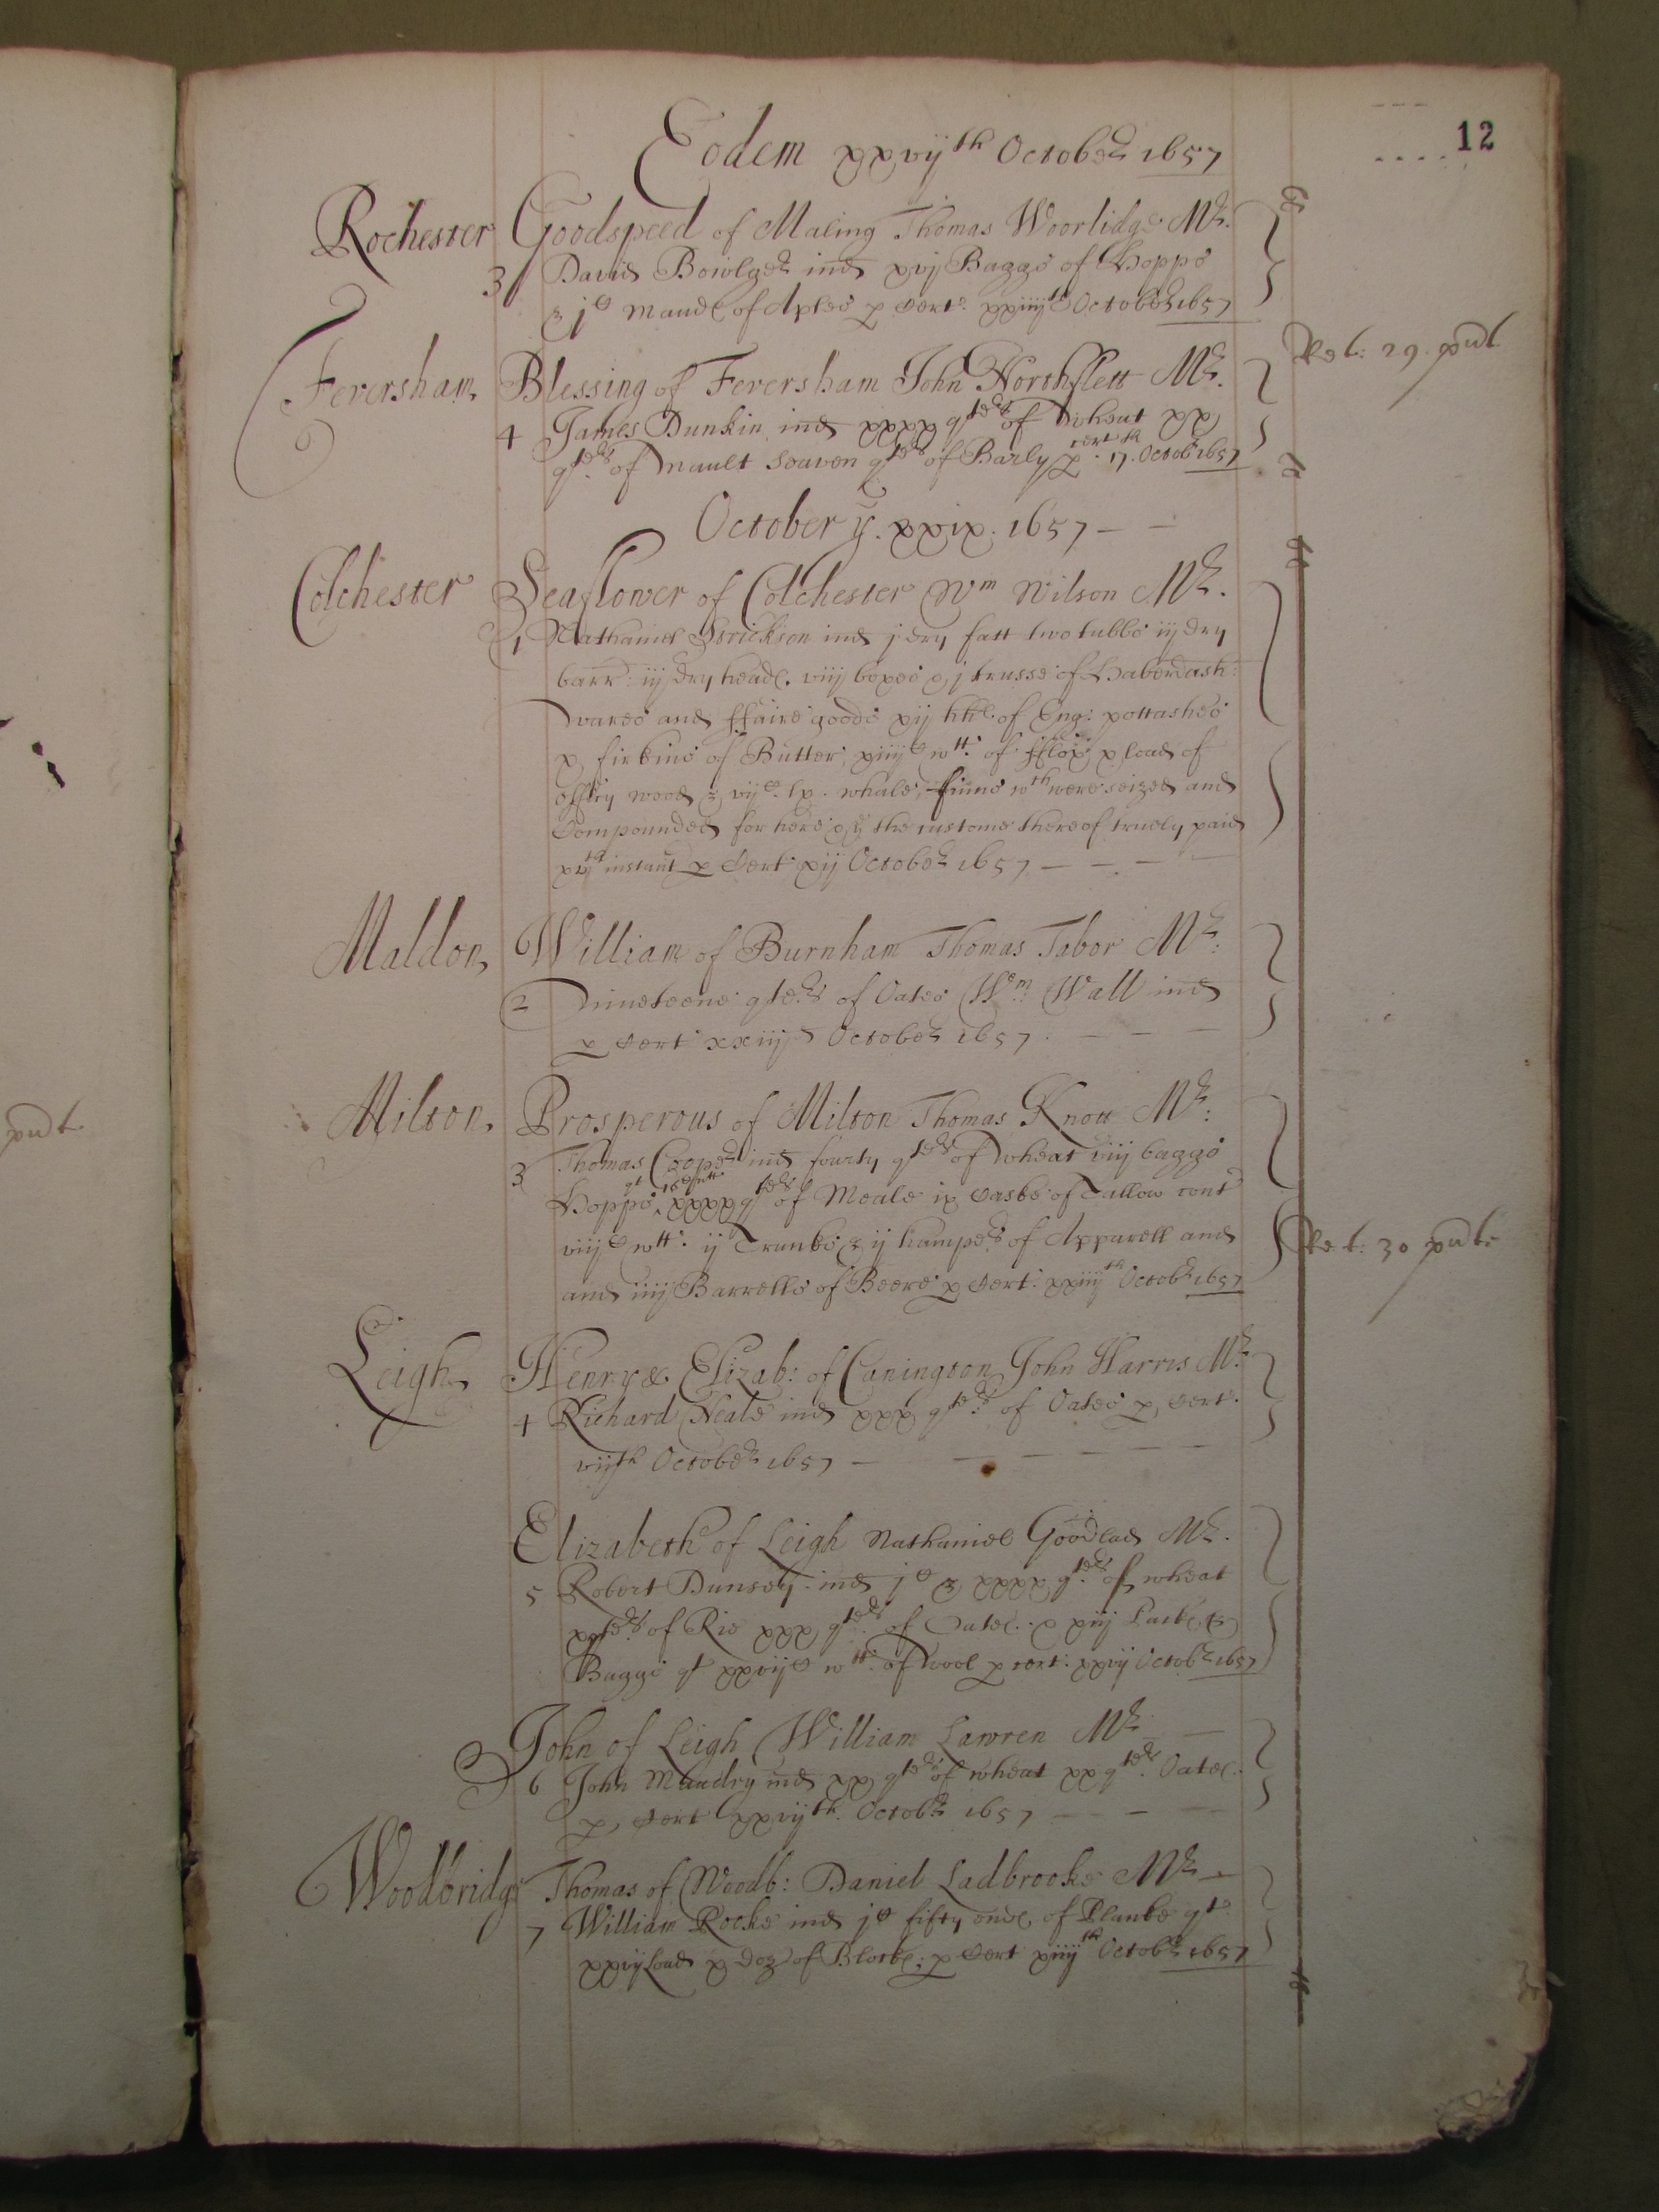 12
Eodem xxvijth October 1657
Rochester Goodspeed of Maling Thomas Woorlidge Mr.
3 David Bowlger ind xvj Baggs of Hopps
& jC Maund of Aples p Cert. xxiiijth October 1657
Feversham Blessing of Feversham John Northflett Mr. Ret: 29. pndt
4 James Dunkin ind xxxx qters of Wheat xx
qters of mault seaven qters of Barly p cert. 17th. Octob 1657
October ye. xxix. 1657 — —
Colchester Seaflower of Colchester Wm Wilson Mr.
1 Nathaniel ind j dry fatt two tubbs iij dry
barr: iij dry head viij boxes & j trusse of Haberdash:
wares and ffaire goods xij hh of Eng: pottashes
x firkins of Butter, xiiijC wtt. of fflox x load of
wood & vijC. lx. whale finns wth were seized and
Compounded for here & ye the custome thereof truely paid
xvjth instant p Cert xij October 1657 — — — —
Maldon William of Burnham Thomas Tabor Mr:
2 Nineteene qters of Oates Wm: Wall ind
p Cert xxiij October 1657. — — —
Milton Prosperous of Milton Thomas Knott Mr:
3 Thomas Cooper ind fourty qters of wheat viij baggs
Hoppes qt 16C wtt xxxx qters of Meale ix Caske of Tallow cont
viijC wtt. ij Trunks & ij hampers of Apparell and Ret: 30 pndt
and iiij Barrells of Beere p Cert: xxiiijth Octobr 1657
Leigh Henry & Elizab: of Canington John Harris Mr
4 Richard Neale ind xxx qters of Oates p Cert.
vijth October 1657 — — — — — —
Elizabeth of Leigh Nathaniel Goodlad Mr.
5 Robert Dunsby ind jC & xxxx qters of wheat
xx qters of Rie xxx qters of Oates & xiij Packs &
Baggs qt xxvijC wtt. of wool p cert: xxvij Octobr 1657
John of Leigh William Lawren Mr — —
6 John Maudry ind xx qters of wheat xx qters Oates.
p Cert xxvijth. Octobr 1657 — — —
Woodbridge Thomas of Woodb: Daniel Ladbrooke Mr —
7 William Rocke ind jC fifty ends of Planke qt
xxvj Load x doz of Blocks: p Cert xiiijth Octobr 1657
pndt